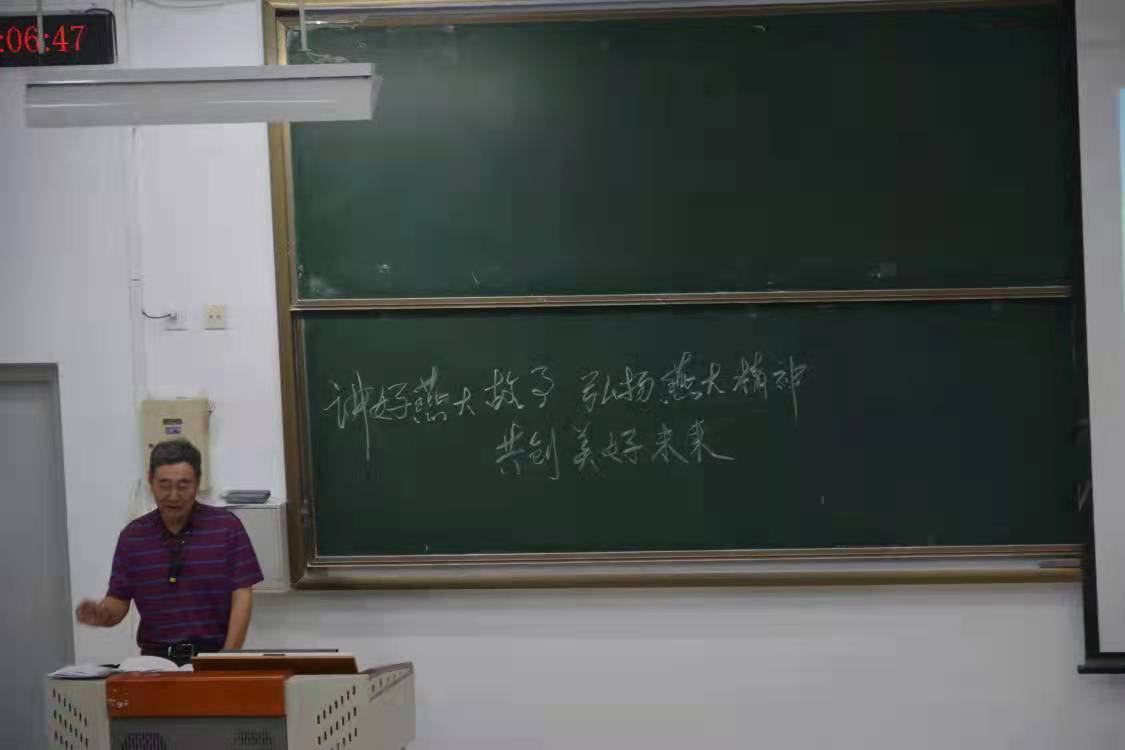 :06:47
讲好燕大故事 弘扬燕大精神
共创美好未来